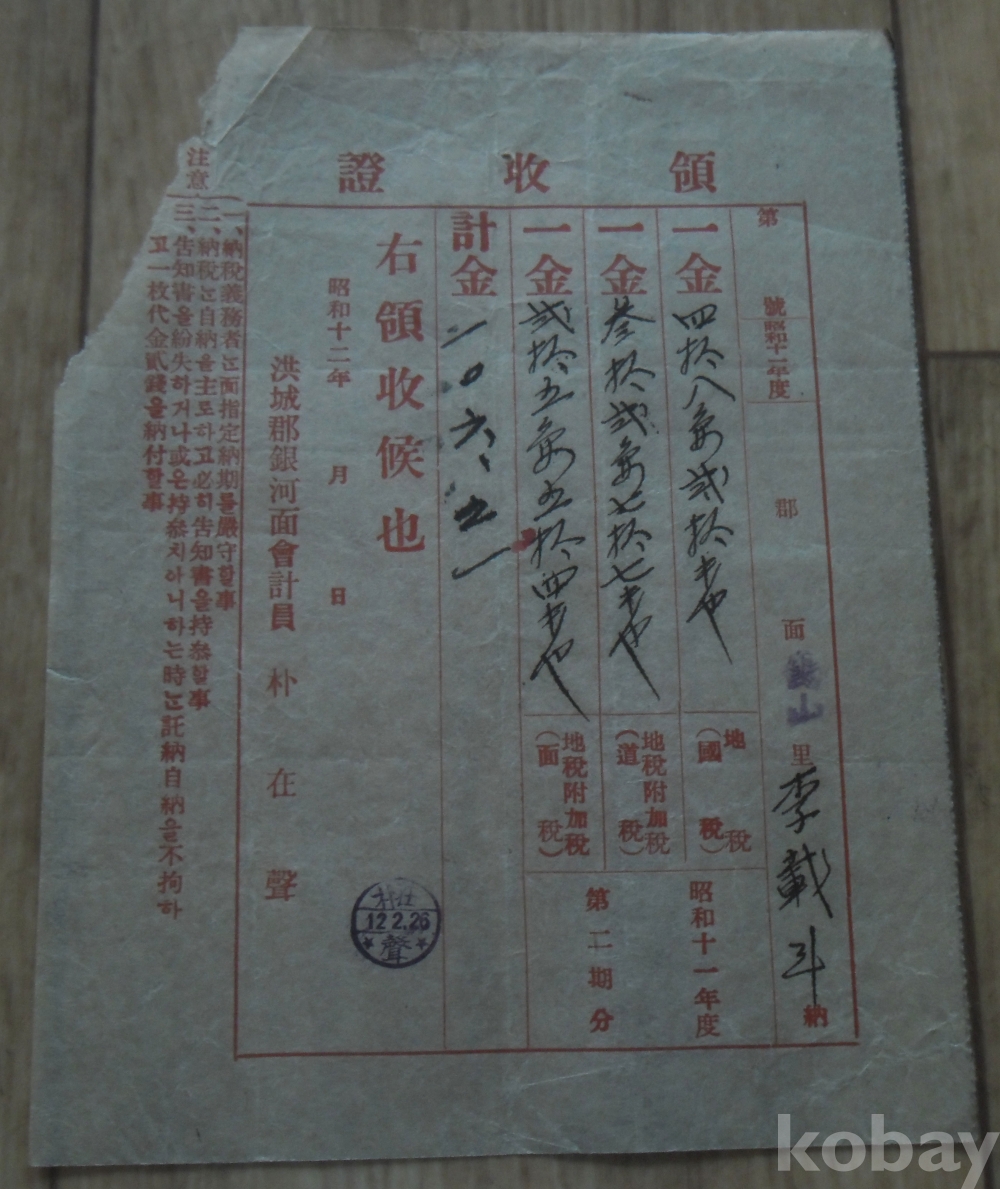 領收證
第 號 昭和十一年度 郡 面 山 里 李載斗 納
一金 四拾八圓貳拾錢也
地稅
(國稅)
一金 參拾貳圓七拾七錢也
地稅附加稅
(道稅)
一金 貳拾五圓五拾四錢也
地稅附加稅
(面稅)
昭和十一年度
第二期分
計金 一〇六、五一
右領收候也
昭和十二年 月 日
洪城郡銀河面會計員 朴在聲
12.2.26
聲
注意
一、納稅義務者는面指定納期를嚴守할事
二、納稅는自納을主로하고必히告知書을持參할事
三、告知書을紛失하거나或은持參지아니하는時는託納自納을不拘하
고一枚代金貳錢을納付할事
kobay